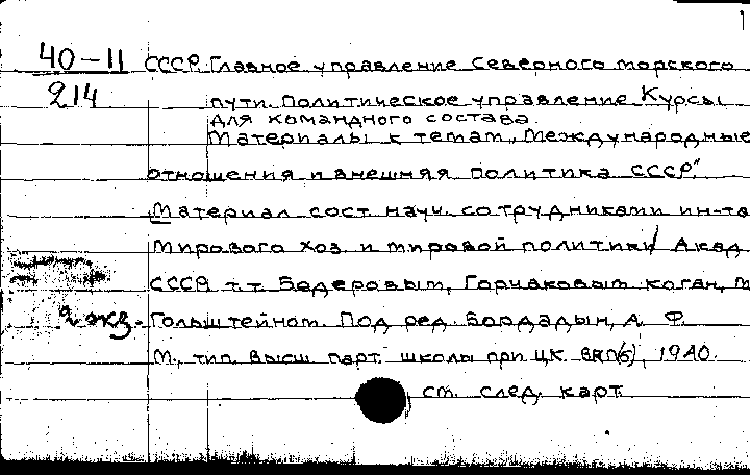 1
40-11 СССР. Главное управление Северного морского
214 пути. Политическое управление Курсы
для командного состава.
Материалы к темам „Международные
отношения и внешняя политика СССР."
Материал сост. научн. сотрудниками ин-та
Мирового хоз. и мировой политики Акад.
СССР т.т. Бедеровым, Горчаковым, Коган,
2 экз. Гольштейном. Под ред. Бордадын, А. Ф.
М., тип. Высш. парт. школы при ЦК. ВКП(б), 1940.
см. след. карт.